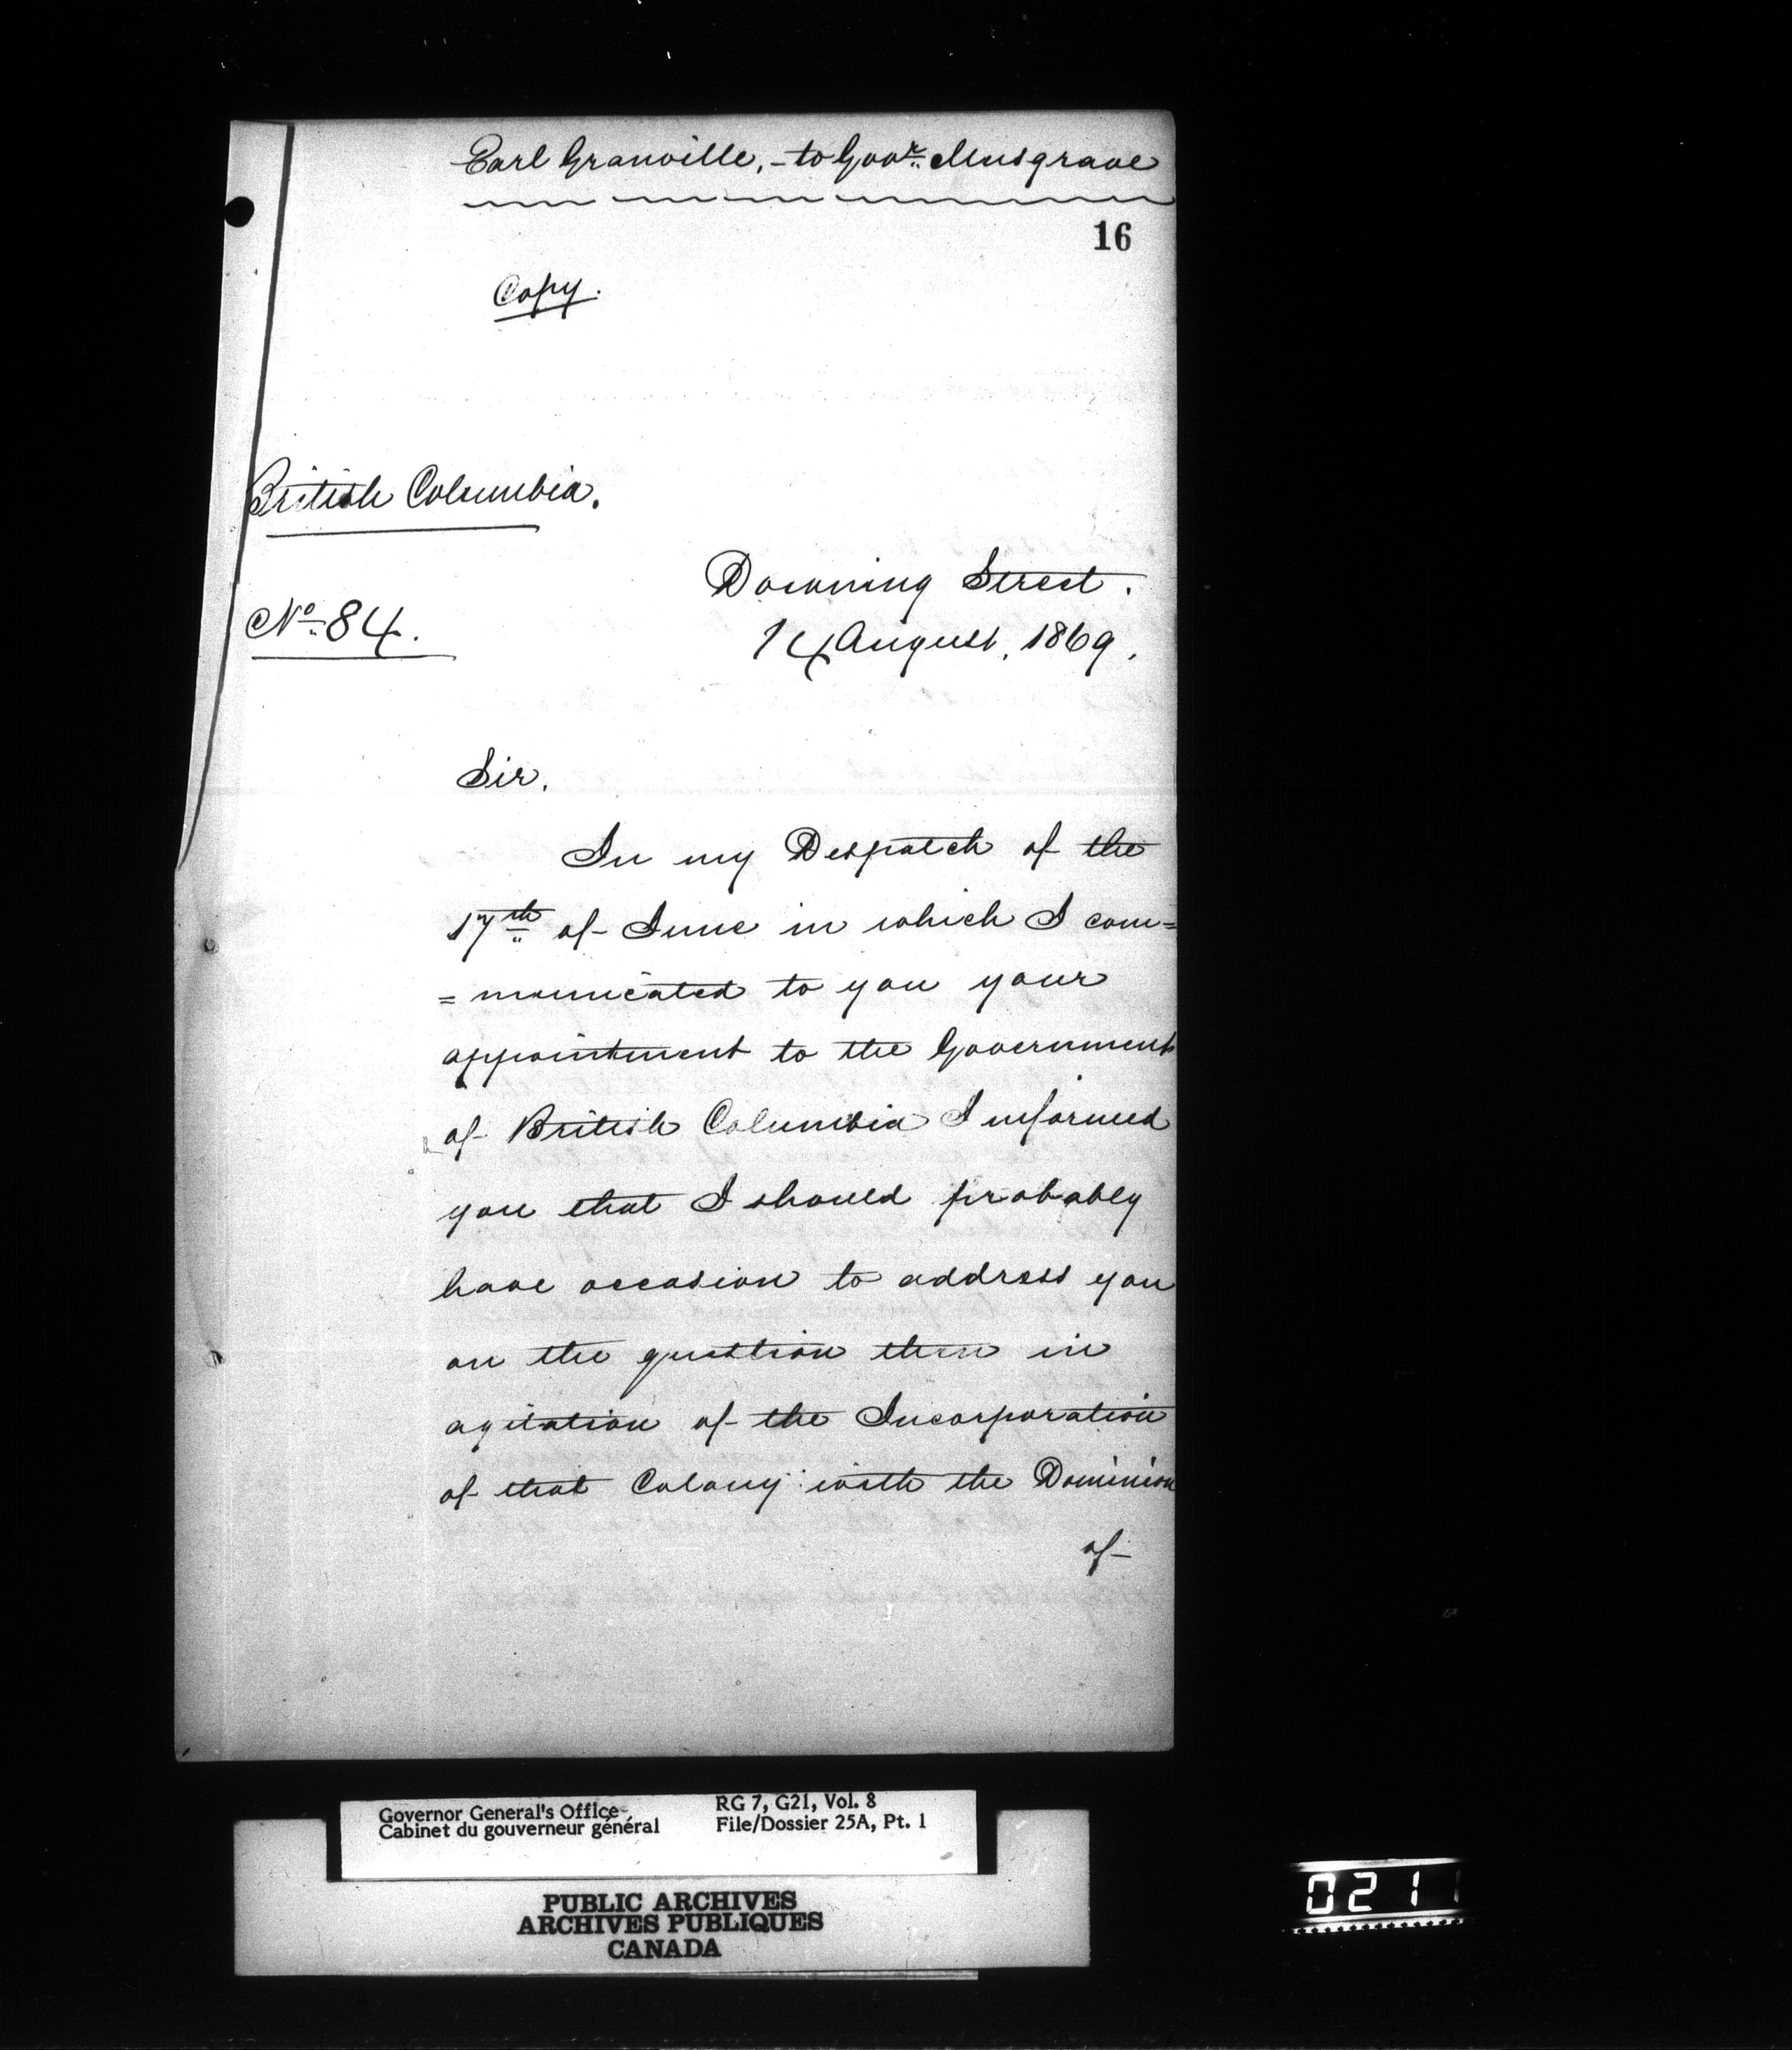 Earl Granville, - to Govr. Musgrave
16
Copy.
British Columbia.
Downing Street.
No. 84.
14 August, 1869.
Sir,
In my Despatch of the
17th of June in which I com=
=municated to you your
appointment to the Government
of British Columbia I informed
you that I should probably
have occasion to address you
on the question then in
agitation of the Incorporation
of that Colony with the Dominion
of
Governor General's Office
Cabinet du gouverneur général
RG 7, G21, Vol. 8
File/Dossier 25A, Pt. 1
PUBLIC ARCHIVES
ARCHIVES PUBLIQUES
CANADA
021